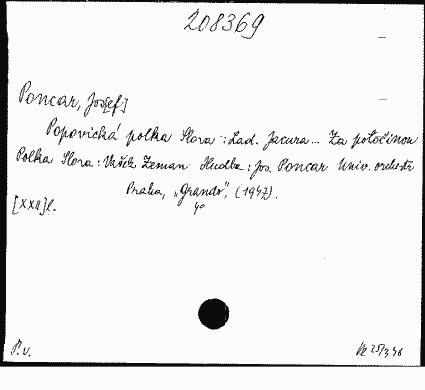 208369
Poncar, Jos[ef]
Popovická polka Slova: Lad. Jacura... Za potočinou
Polka Slova: Vašek Zeman Hudba: Jos. Poncar Univ. orchestr
Praha, „Grando", (1947).
4°
[XXII]l.
P.v.